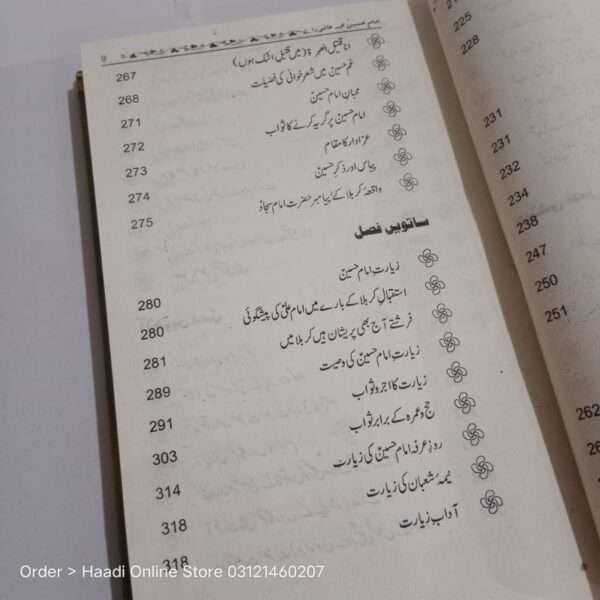 9
انا قتیل العبرۃ (میں قتیلِ اشک ہوں) 267
غمِ حسینؑ میں شعر خوانی کی فضیلت 268
محبانِ امام حسینؑ 271
امام حسینؑ پر گریہ کرنے کا ثواب 272
عزادار کا مقام 273
پیاس اور ذکرِ حسینؑ 274
واقعہ کربلا کے پیامبر حضرت امام سجادؑ 275
ساتویں فصل
زیارتِ امام حسینؑ 280
استقبالِ کربلا کے بارے میں امام علیؑ کی پیشگوئی 280
فرشتے آج بھی پریشان ہیں کربلا میں 281
زیارتِ امام حسینؑ کی وصیت 289
زیارت کا اجر و ثواب 291
حج و عمرہ کے برابر ثواب 303
روزِ عرفہ امام حسینؑ کی زیارت 314
نیمۂ شعبان کی زیارت 318
آدابِ زیارت 318
225
228
231
231
232
234
238
247
250
251
262
Order > Haadi Online Store 03121460207